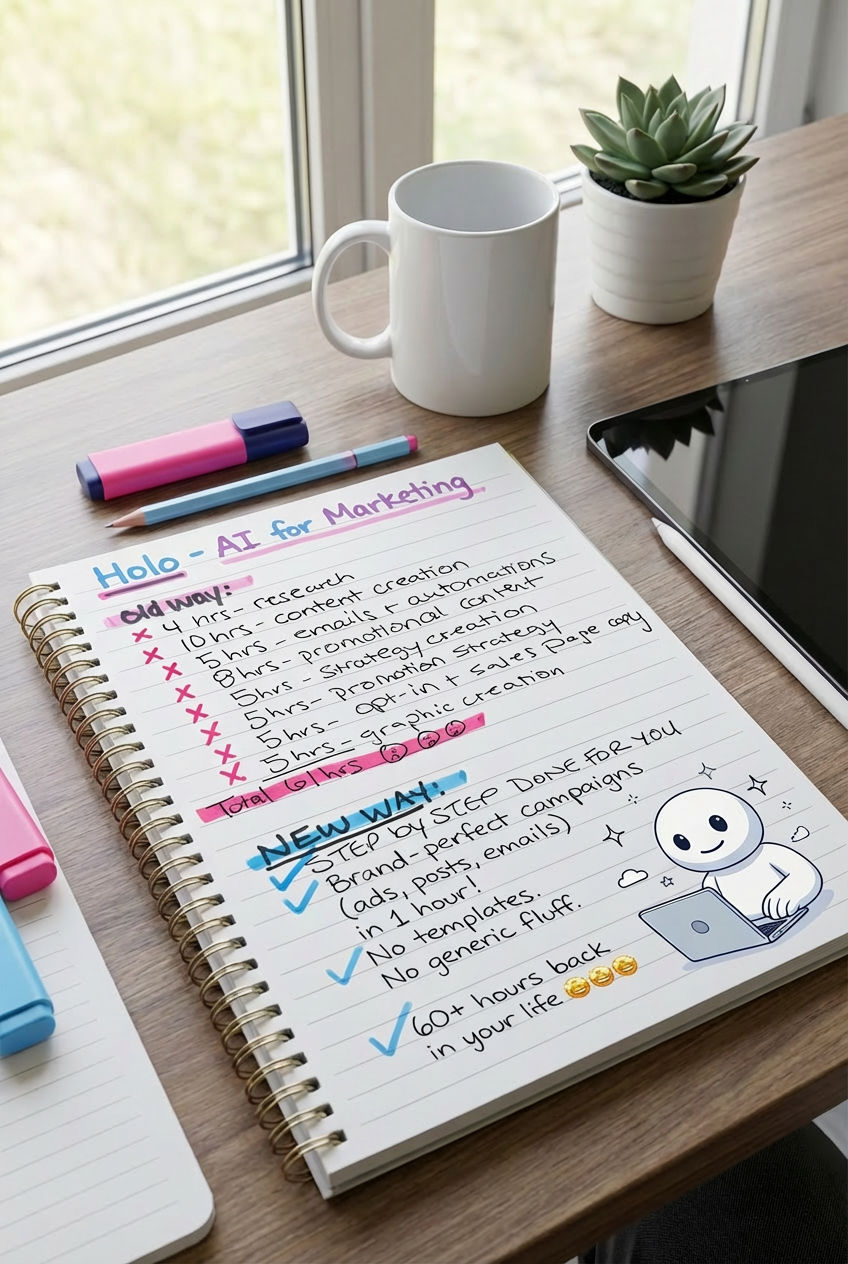 Holo - AI for Marketing
Old way:
4 hrs - research
10 hrs - content creation
5 hrs - emails + automations
8 hrs - promotional content
5 hrs - Strategy creation
5 hrs - Promotion Strategy
5 hrs - opt-in + Sales Page copy
5 hrs - graphic creation
Total 61 hrs
NEW WAY:
STEP by STEP DONE FOR YOU
Brand-perfect campaigns
(ads, posts, emails)
in 1 hour!
No templates.
No generic fluff.
60+ hours back
in your life